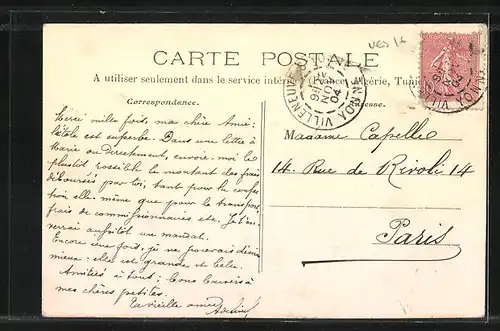 CARTE POSTALE
A utiliser seulement dans le service intérieur (France, Algérie, Tunisie
Correspondance.
Adresse.
VILLENEUVE
Merci mille fois, ma chère Amie
l'étole est superbe. Dans une lettre à
Marie ou directement, envoie-moi le
plustôt possible le montant des frais
déboursés par toi, tant pour la confec
tion elle-même que pour le transport,
frais de commissionnaires etc. Je t'en
verrai aussitôt un mandat.
Encore une fois, je ne pouvais désirer
mieux: elle est grande et belle.
Amitiés à tous; bons baisers à
mes chères petites.
Ta vieille amie
Madame Capelle
14. Rue de Rivoli 14
Paris